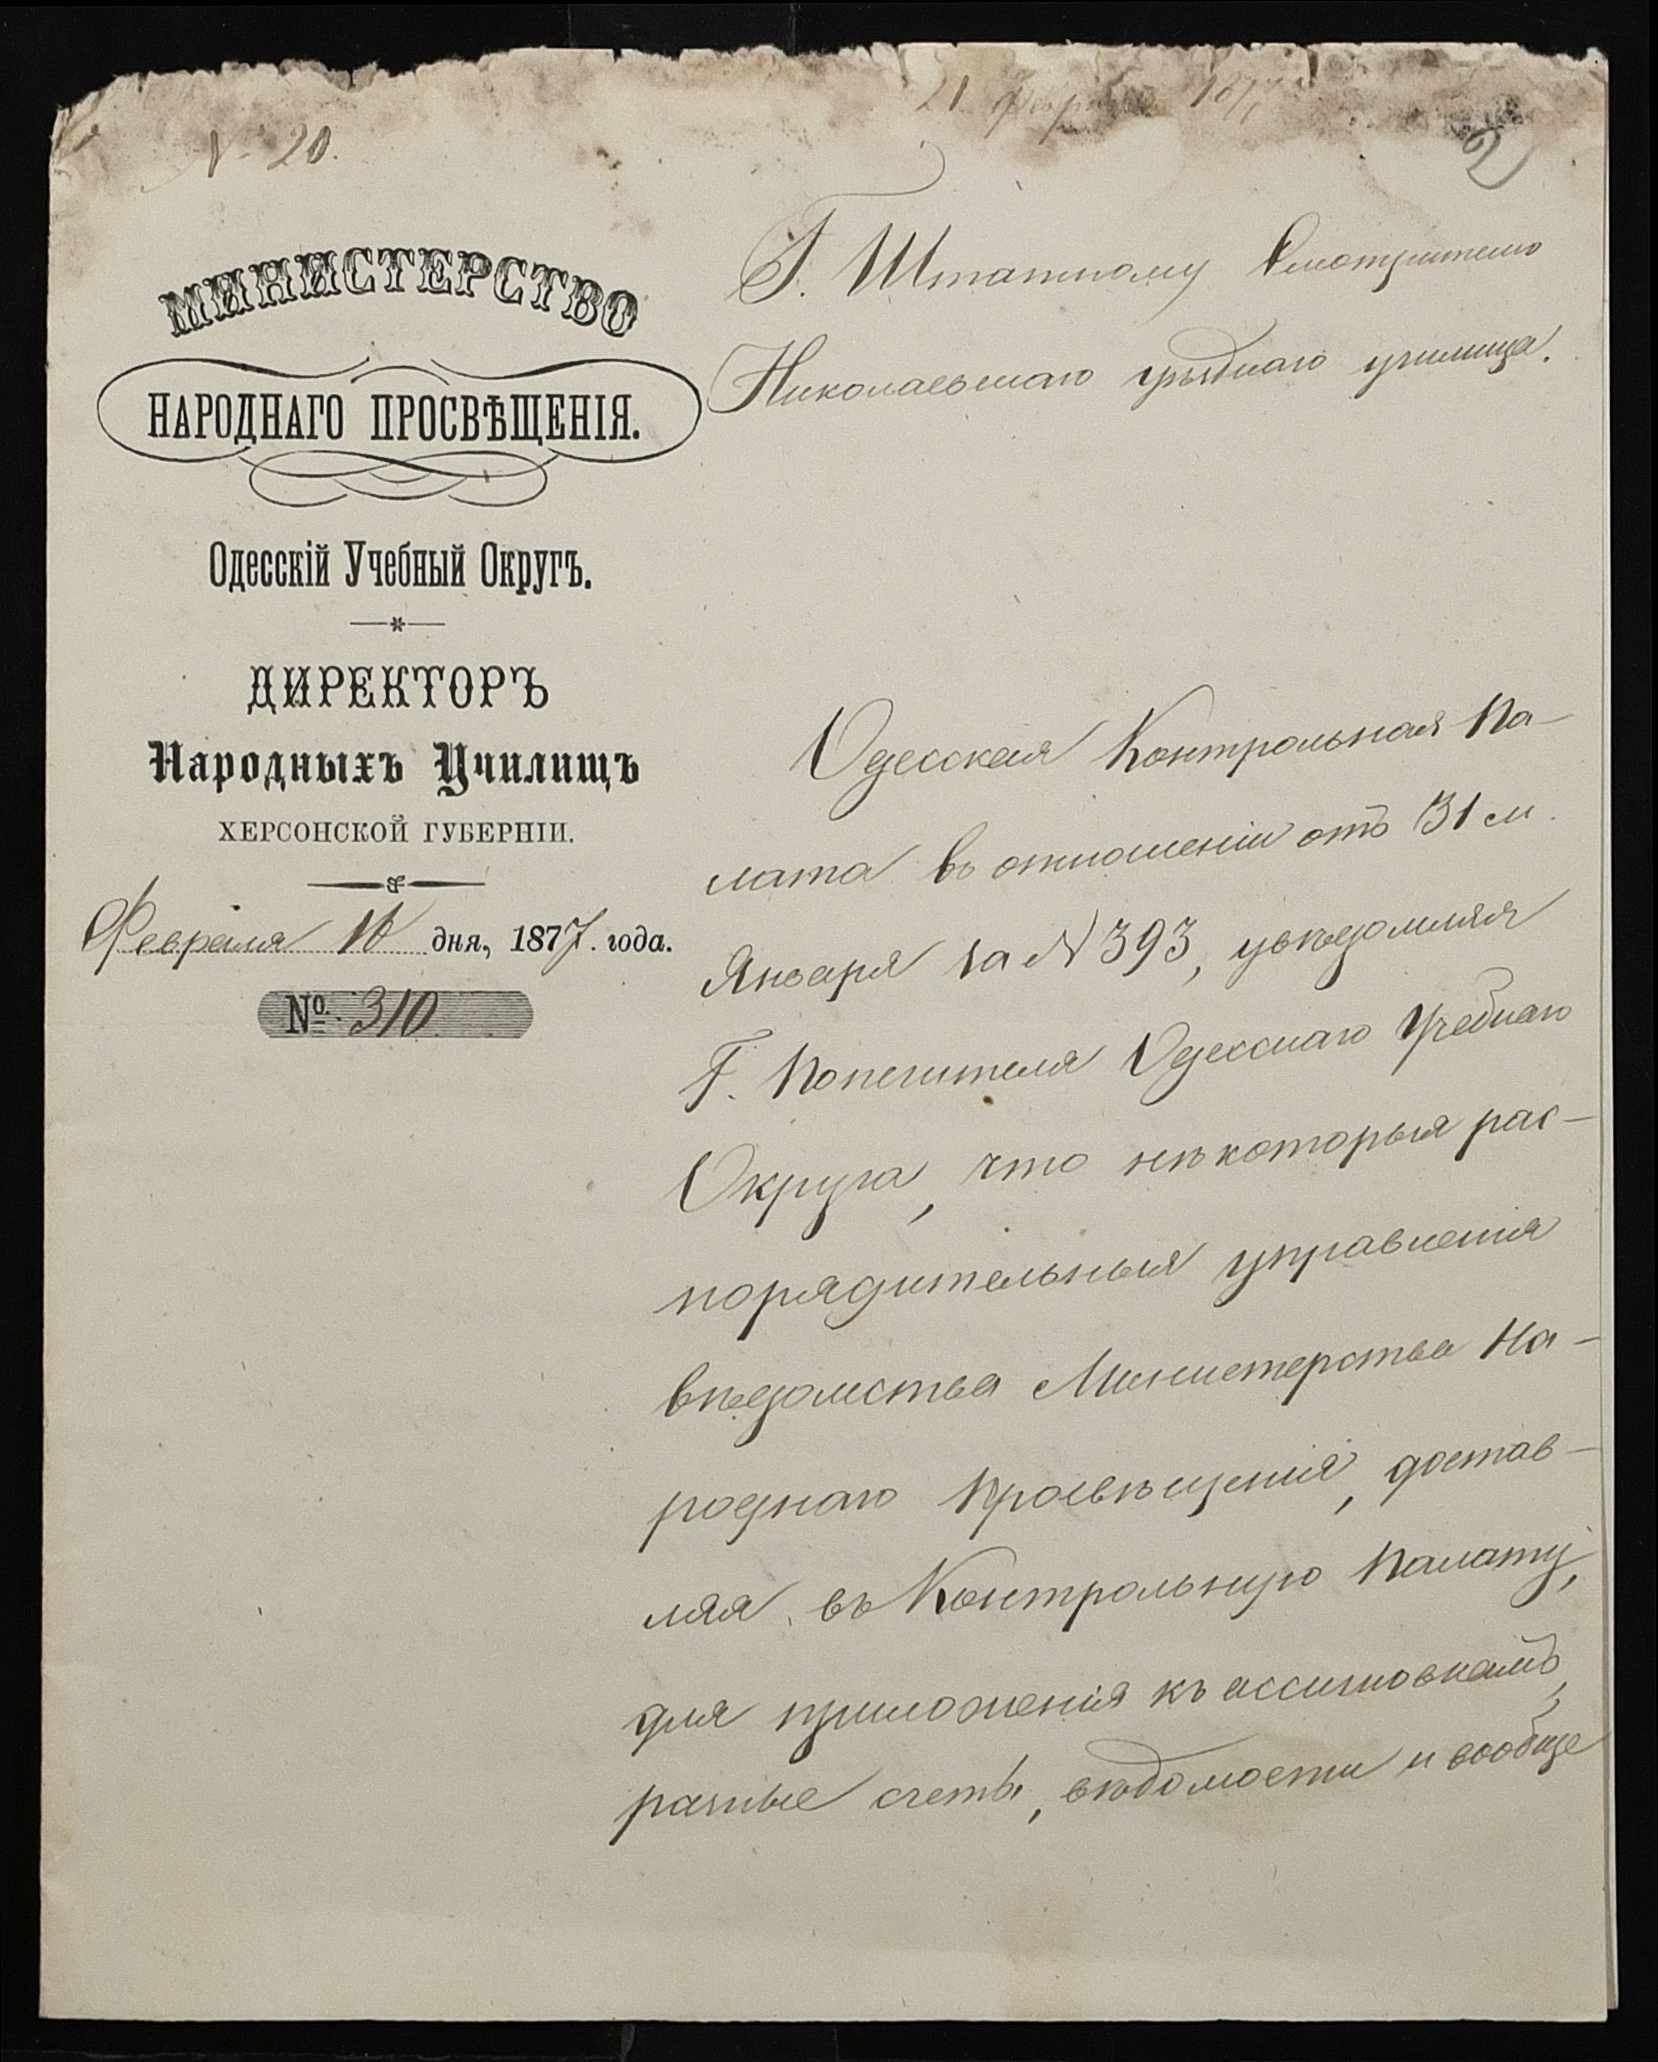 N. 20.
21 февраля 1877
2
МИНИСТЕРСТВО
НАРОДНАГО ПРОСВѢЩЕНІЯ.
Одесскій Учебный Округъ.
ДИРЕКТОРЪ
Народныхъ Училищъ
ХЕРСОНСКОЙ ГУБЕРНІИ.
Февраля 18 дня, 1877. года.
№ 310
Г. Штатному Смотрителю
Николаевскаго уѣзднаго училища.
Одесская Контрольная Па-
лата въ отношеніи отъ 31 м.
Января за N 393, увѣдомляя
Г. Попечителя Одесскаго Учебнаго
Округа, что нѣкоторыя рас-
порядительныя управленія
вѣдомства Министерства На-
роднаго Просвѣщенія, достав-
ляя въ Контрольную Палату,
для приложенія къ ассигновкамъ,
разные счеты, вѣдомости и вообще